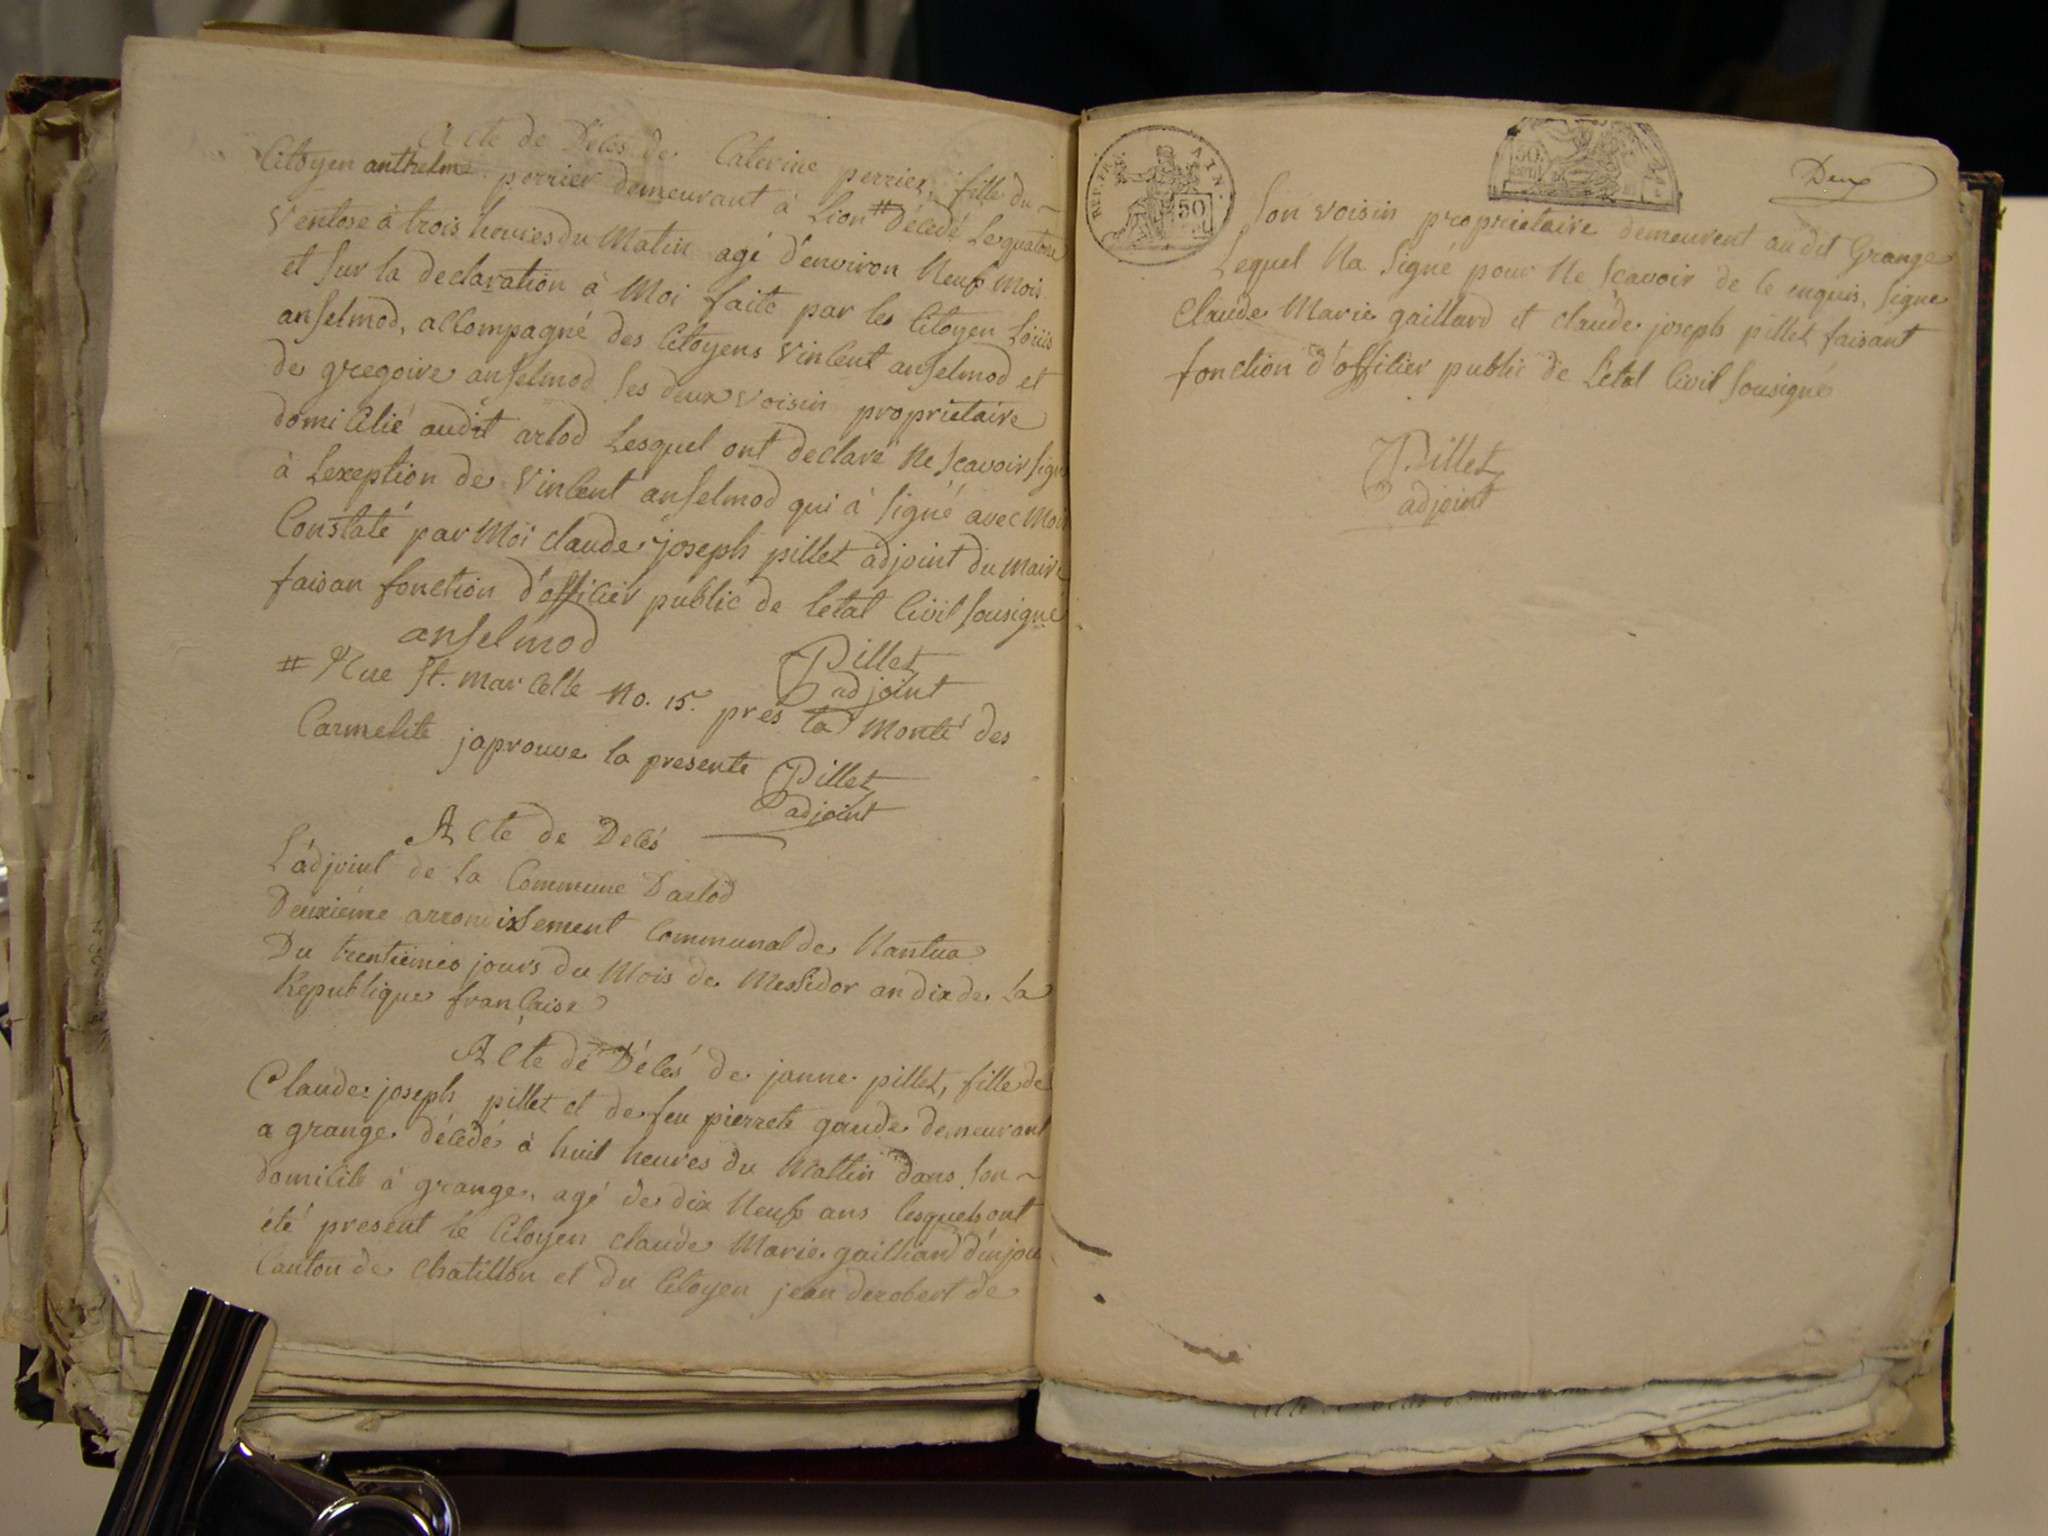 Acte de Déces de Caterine perrier, fille du
Citoyen anthelme perrier demeurant à Lion # Décedé Le quatorze
Ventose à trois heures du Matin agé d'environ Neuf Mois
et sur la declaration à Moi faite par les Citoyen Loüis
anselmod, accompagné des Citoyens Vincent anselmod et
de gregoire anselmod ses deux voisin proprietaire
domicilié audit arlod Lesquel ont declaré Ne scavoir signe
à Lexeption de Vincent anselmod qui à signé avec Moi
Constaté par Moi claude joseph pillet adjoint du maire
faisan fonction d'officier public de letat Civil sousigné
anselmod
Pillet
adjoint
# Rue St. marcelle No. 15. prés la Monté des
Carmelite japrouve la presente
Pillet
adjoint
Acte de Decés
L'adjoint de la Commune Darlod
Deuxiéme arrondissement Communal de Nantua
Du trentiémes jours du Mois de Messidor an dix de la
Republique francaise
Acte de Décés de janne pillet, fille de
Claude joseph pillet et de feu pierrete gaude demeurant
a grange décédé à huit heures du Mattin dans son
domicile à grange, agé de dix Neuf ans lesquels ont
été present le Citoyen claude Marie gailliard d'injou
Canton de Chatillon et du Citoyen jean derobert de
REP. FRA. AIN
50
50
Deux
son voisin proprietaire demeurent au dit Grange
Lequel Na signé pour Ne scavoir de ce enquis, signe
Claude Marie gaillard et claude joseph pillet faisant
fonction d'officier public de L'etat Civil sousigné
Pillet
adjoint